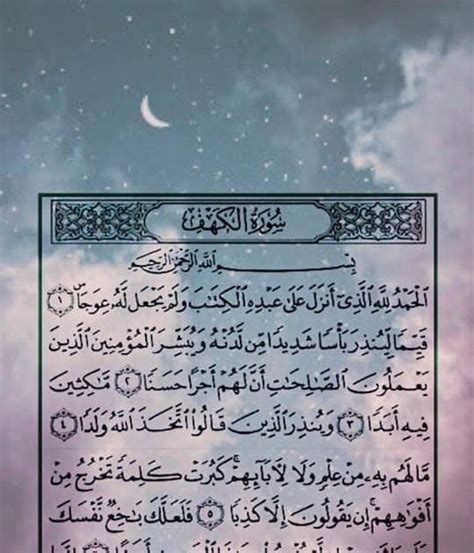 سُورَةُ الكَهْفِ
بِسْمِ اللَّهِ الرَّحْمَٰنِ الرَّحِيمِ
الْحَمْدُ لِلَّهِ الَّذِي أَنزَلَ عَلَىٰ عَبْدِهِ الْكِتَٰبَ وَلَمْ يَجْعَل لَّهُ عِوَجَاۜ ١
قَيِّمًا لِّيُنذِرَ بَأْسًا شَدِيدًا مِّن لَّدُنْهُ وَيُبَشِّرَ الْمُؤْمِنِينَ الَّذِينَ
يَعْمَلُونَ الصَّٰلِحَٰتِ أَنَّ لَهُمْ أَجْرًا حَسَنًا ٢ مَّٰكِثِينَ
فِيهِ أَبَدًا ٣ وَيُنذِرَ الَّذِينَ قَالُوا اتَّخَذَ اللَّهُ وَلَدًا ٤
مَّا لَهُم بِهِ مِنْ عِلْمٍ وَلَا لِآبَائِهِمْ ۚ كَبُرَتْ كَلِمَةً تَخْرُجُ مِنْ
أَفْوَٰهِهِمْ ۚ إِن يَقُولُونَ إِلَّا كَذِبًا ٥ فَلَعَلَّكَ بَٰخِعٌ نَّفْسَكَ